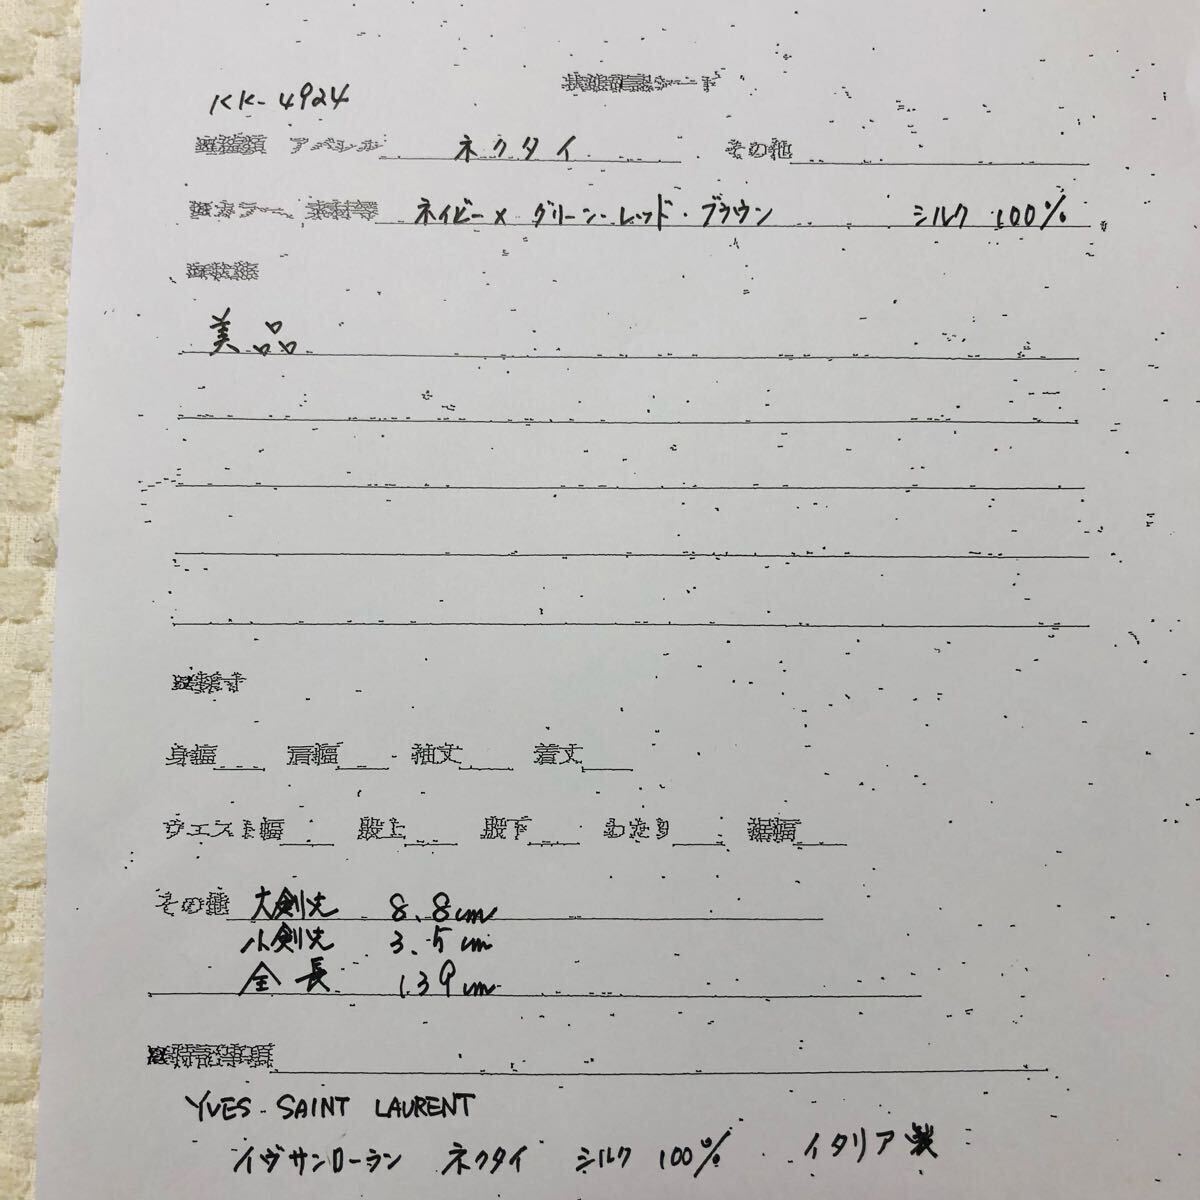 状態確認シート
KK-4924
アパレル ネクタイ その他
カラー、素材等 ネイビー×グリーン・レッド・ブラウン シルク 100%
美品
採寸
身幅 肩幅 袖丈 着丈
ウエスト幅 股上 股下 わたり 裾幅
その他 大剣先 8.8cm
小剣先 3.5cm
全長 139cm
特記事項
YVES SAINT LAURENT
イヴサンローラン ネクタイ シルク 100% イタリア製